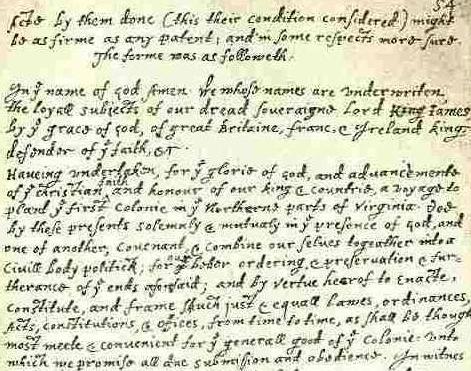 54
Acte by them done (this their condition considered) might
be as firme as any patent; and in some respects more sure.
The forme was as followeth.
In yͤ name of god Amen. We whose names are underwriten,
the loyall subjects of our dread soveraigne Lord King James
by yͤ grace of god, of great Britaine, franc, & Ireland king,
defender of yͤ faith, &c.
Haveing undertaken, for yͤ glorie of god, and advancemente
of yͤ christian faith and honour of our king & countrie, a voyage to
plant yͤ first colonie in yͤ Northerne parts of Virginia. Doe
by these presents solemnly & mutualy in yͤ presence of god, and
one of another, covenant, & combine our selves togeather into a
Civill body politick; for our better ordering, & preservation & fur-
therance of yͤ ends aforesaid; and by vertue hearof to enacte,
constitute, and frame such just & equall lawes, ordinances,
Acts, constitutions, & offices, from time to time, as shall be though
most meete & convenient for yͤ generall good of yͤ colonie: unto
which we promise all due submission and obedience. In witnes